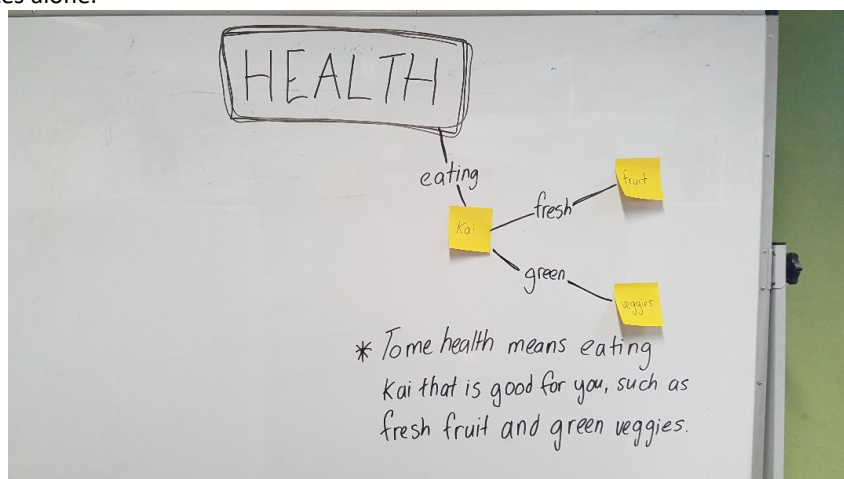 HEALTH
eating
Kai
fresh
fruit
green
veggies
* To me health means eating
Kai that is good for you, such as
fresh fruit and green veggies.